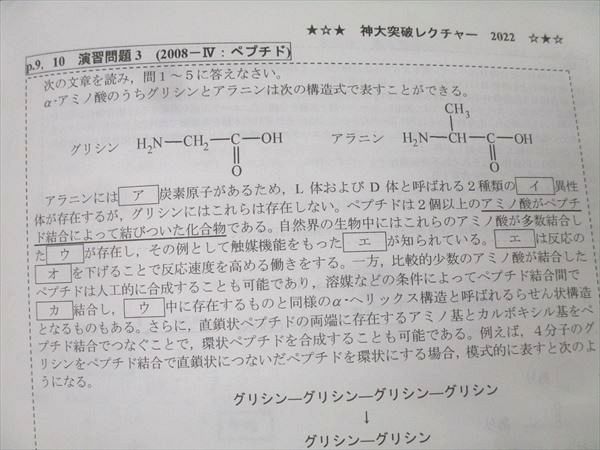 ★☆★ 神大突破レクチャー 2022 ☆★☆
p.9, 10 演習問題3 (2008－Ⅳ：ペプチド)
次の文章を読み，問1～5に答えなさい。
α-アミノ酸のうちグリシンとアラニンは次の構造式で表すことができる。
グリシン H₂N—CH₂—C—OH
O
アラニン H₂N—CH—C—OH
CH₃
O
アラニンには ア 炭素原子があるため，L 体および D 体と呼ばれる2種類の イ 異性
体が存在するが，グリシンにはこれらは存在しない。ペプチドは2個以上のアミノ酸がペプチ
ド結合によって結びついた化合物である。自然界の生物中にはこれらのアミノ酸が多数結合し
た ウ が存在し，その例として触媒機能をもった エ が知られている。 エ は反応の
オ を下げることで反応速度を高める働きをする。一方，比較的少数のアミノ酸が結合した
ペプチドは人工的に合成することも可能であり，溶媒などの条件によってペプチド結合間で
カ 結合し， ウ 中に存在するものと同様のα-ヘリックス構造と呼ばれるらせん状構造
となるものもある。さらに，直鎖状ペプチドの両端に存在するアミノ基とカルボキシル基をペ
プチド結合でつなぐことで，環状ペプチドを合成することも可能である。例えば，4分子のグ
リシンをペプチド結合で直鎖状につないだペプチドを環状にする場合，模式的に表すと次のよ
うになる。
グリシン—グリシン—グリシン—グリシン
↓
グリシン—グリシン